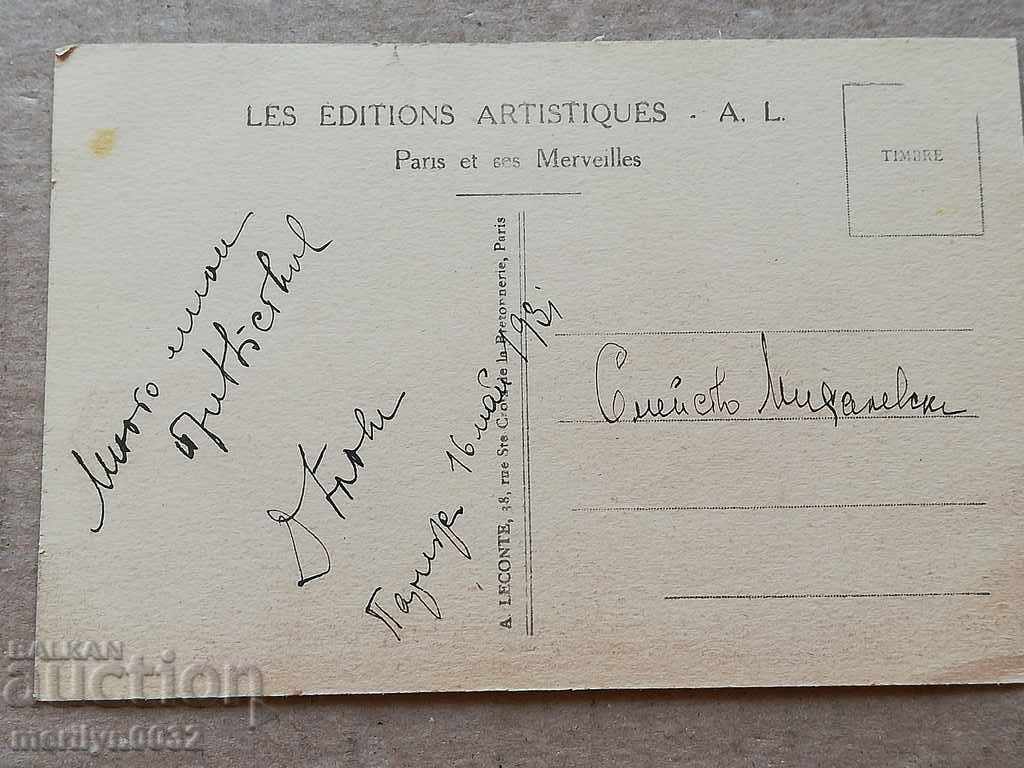 LES EDITIONS ARTISTIQUES - A. L.
Paris et ses Merveilles
TIMBRE
Много
привѣтствия
Париж 16 май 1931
A. LECONTE, 38, rue Ste-Croix-de-la-Bretonnerie, Paris
Смейство Михалевски
BALKAN
auction
merilyn0032